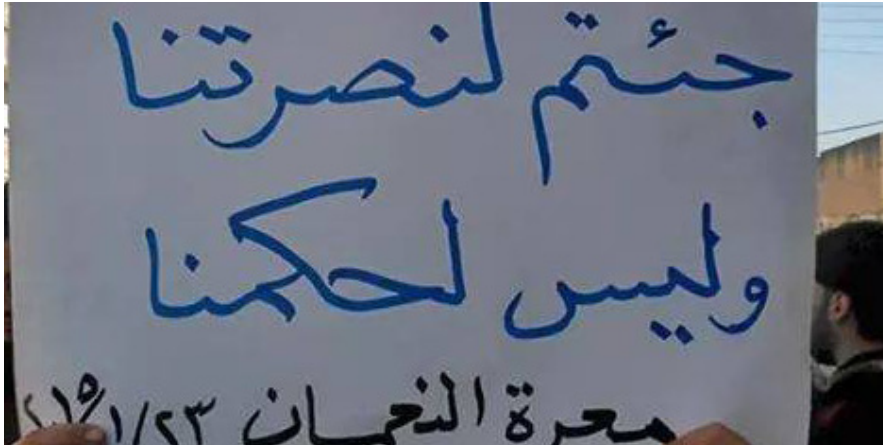 جئتم لنصرتنا
وليس لحكمنا
معرة النعمان ٢٣/١/٢٠١٥